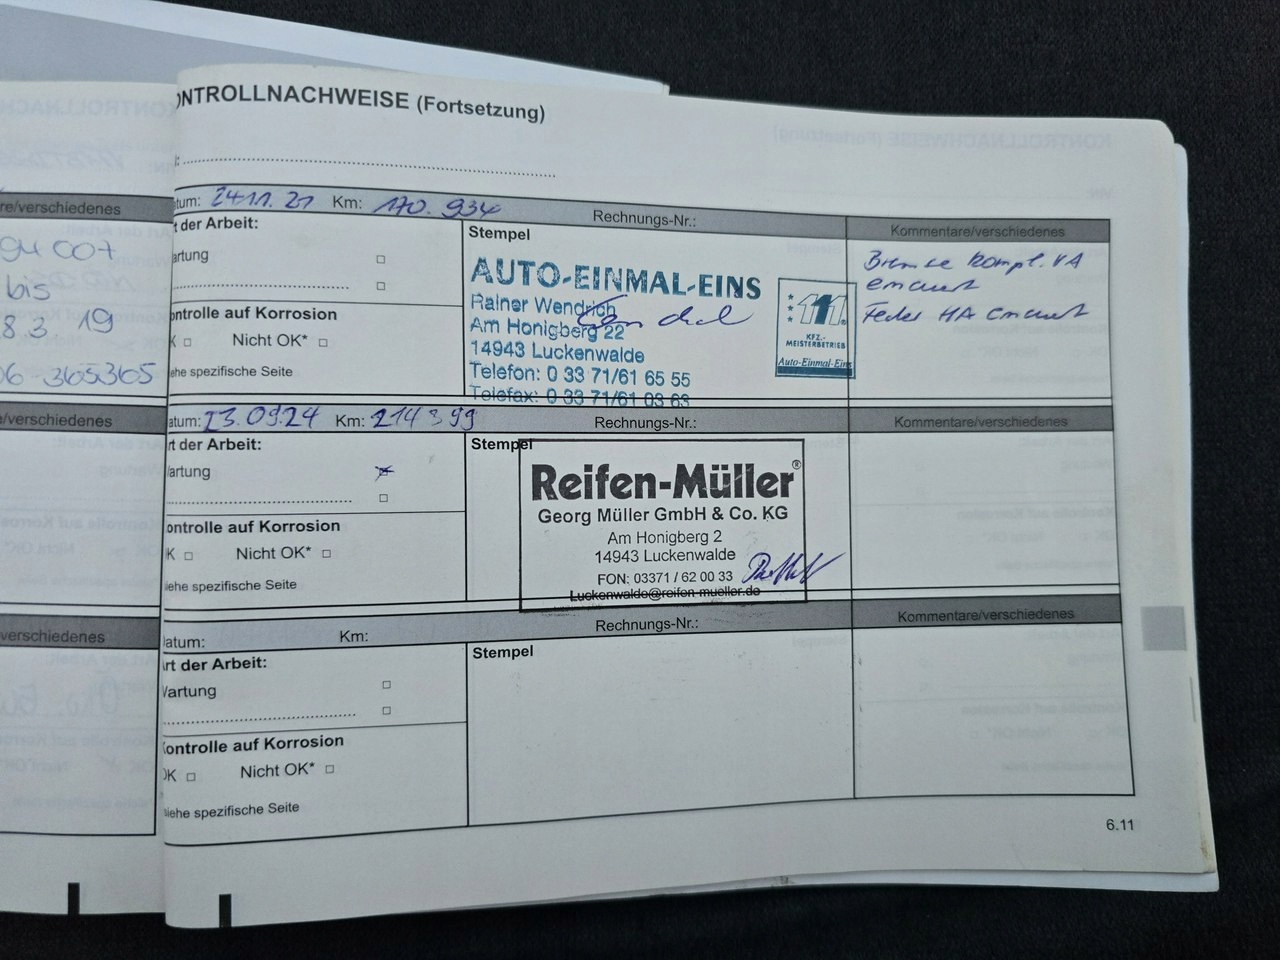 ONTROLLNACHWEISE (Fortsetzung)
re/verschiedenes
94 007
bis
8.3. 19
06-3653365
e/verschiedenes
verschiedenes
atum: 24.11.21 Km: 170.934 Rechnungs-Nr.: Kommentare/verschiedenes
t der Arbeit:
artung
ontrolle auf Korrosion
K □ Nicht OK* □
ehe spezifische Seite
Stempel
AUTO-EINMAL-EINS
Rainer Wendrich
Am Honigberg 22
14943 Luckenwalde
Telefon: 0 33 71/61 65 55
Telefax: 0 33 71/61 03 63
1x1
KFZ.-
MEISTERBETRIEB
Auto-Einmal-Eins
Bremse kompl. VA
erneuert
Feder HA erneuert
atum: 23.09.24 Km: 214399 Rechnungs-Nr.: Kommentare/verschiedenes
rt der Arbeit:
artung
ontrolle auf Korrosion
K □ Nicht OK* □
iehe spezifische Seite
Stempel
Reifen-Müller®
Georg Müller GmbH & Co. KG
Am Honigberg 2
14943 Luckenwalde
FON: 03371 / 62 00 33
Luckenwalde@reifen-mueller.de
atum: Km: Rechnungs-Nr.: Kommentare/verschiedenes
rt der Arbeit:
Wartung
ontrolle auf Korrosion
OK □ Nicht OK* □
iehe spezifische Seite
Stempel
6.11